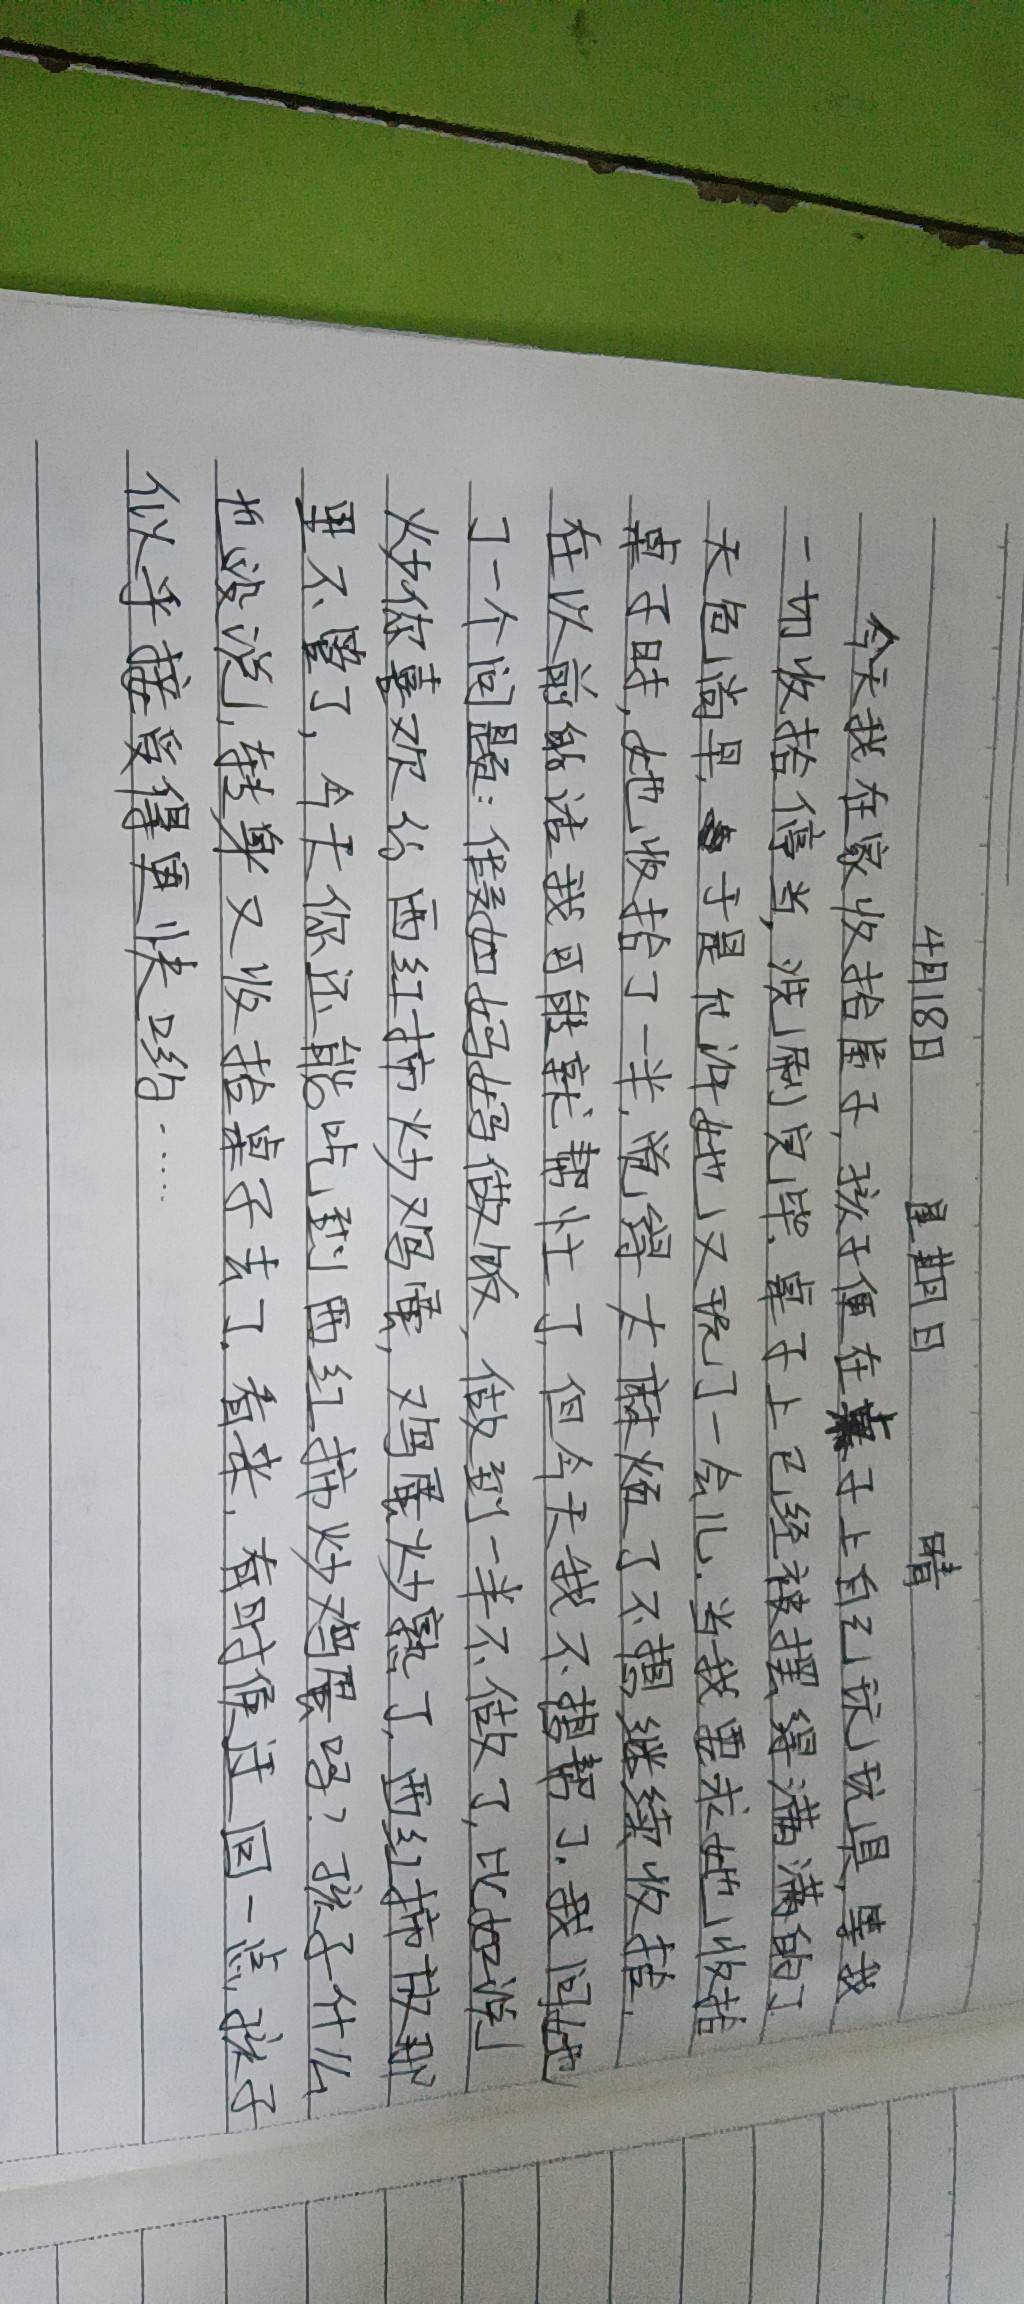 4月18日 星期日 晴
今天我在家收拾屋子,孩子便在桌子上自己玩玩具,等我
一切收拾停当,洗刷完毕,桌子上已经被摆得满满的了
天色尚早,于是允许她又玩了一会儿.当我要求她收拾
桌子时,她收拾了一半,觉得太麻烦了不想继续收拾.
在以前的话我可能就帮忙了,但今天我不想帮了.我问她
了一个问题:假如妈妈做饭,做到一半不做了,比如说
炒你喜欢的西红柿炒鸡蛋,鸡蛋炒熟了,西红柿放那
里不管了,今天你还能吃到西红柿炒鸡蛋吗?孩子什么
也没说,转身又收拾桌子去了.看来,有时候迂回一点,孩子
似乎接受得更快哟……